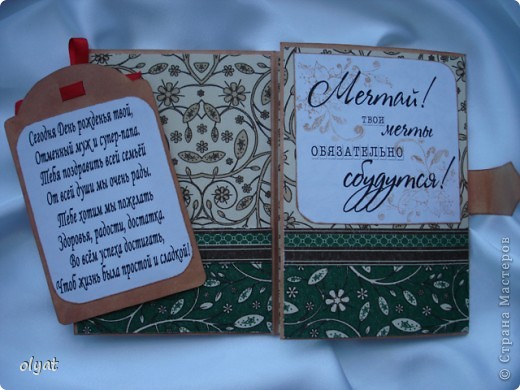 Сегодня День рожденья твой,
Отменный муж и супер-папа.
Тебя поздравить всей семьёй
От всей души мы очень рады.
Тебе хотим мы пожелать
Здоровья, радости, достатка.
Во всём успеха достигать,
Чтоб жизнь была простой и сладкой!
Мечтай!
ТВОИ
мечты
ОБЯЗАТЕЛЬНО
сбудутся!
olyat
© Страна Мастеров